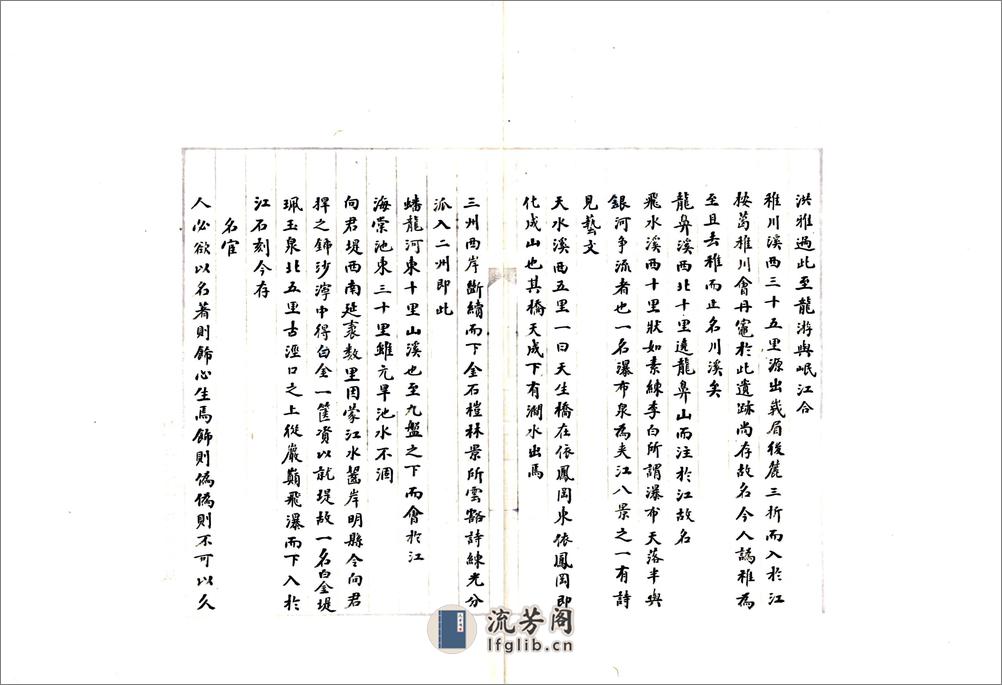 洪雅過此至龍游與岷江合
稚川溪西三十五里源出峩眉後麓三折而入於江
按葛稚川會丹竈於此遺跡尚存故名今人譌稚為
至且去稚而止名川溪矣
龍鼻溪西北十里遶龍鼻山而注於江故名
飛水溪西十里狀如素練李白所謂瀑布天落半與
銀河爭流者也一名瀑布泉為夾江八景之一有詩
見藝文
天水溪西五里一曰天生橋在依鳳岡東依鳳岡即
化成山也其橋天成下有澗水出焉
三州西岸斷續而下金石樷林景所雲谿詩練光分
派入二州即此
蟠龍河東十里山溪也至九盤之下而會於江
海棠池東三十里雖亢旱池水不涸
向君堤西南延袤數里因蒙江水齧岸明縣令向君
捍之鋪沙濘中得白金一篚資以就堤故一名白金堤
珮玉泉北五里古涇口之上從巖巔飛瀑而下入於
江石刻今存
名宦
人必欲以名著則飾心生焉飾則偽偽則不可以久
流芳阁
lfglib.cn